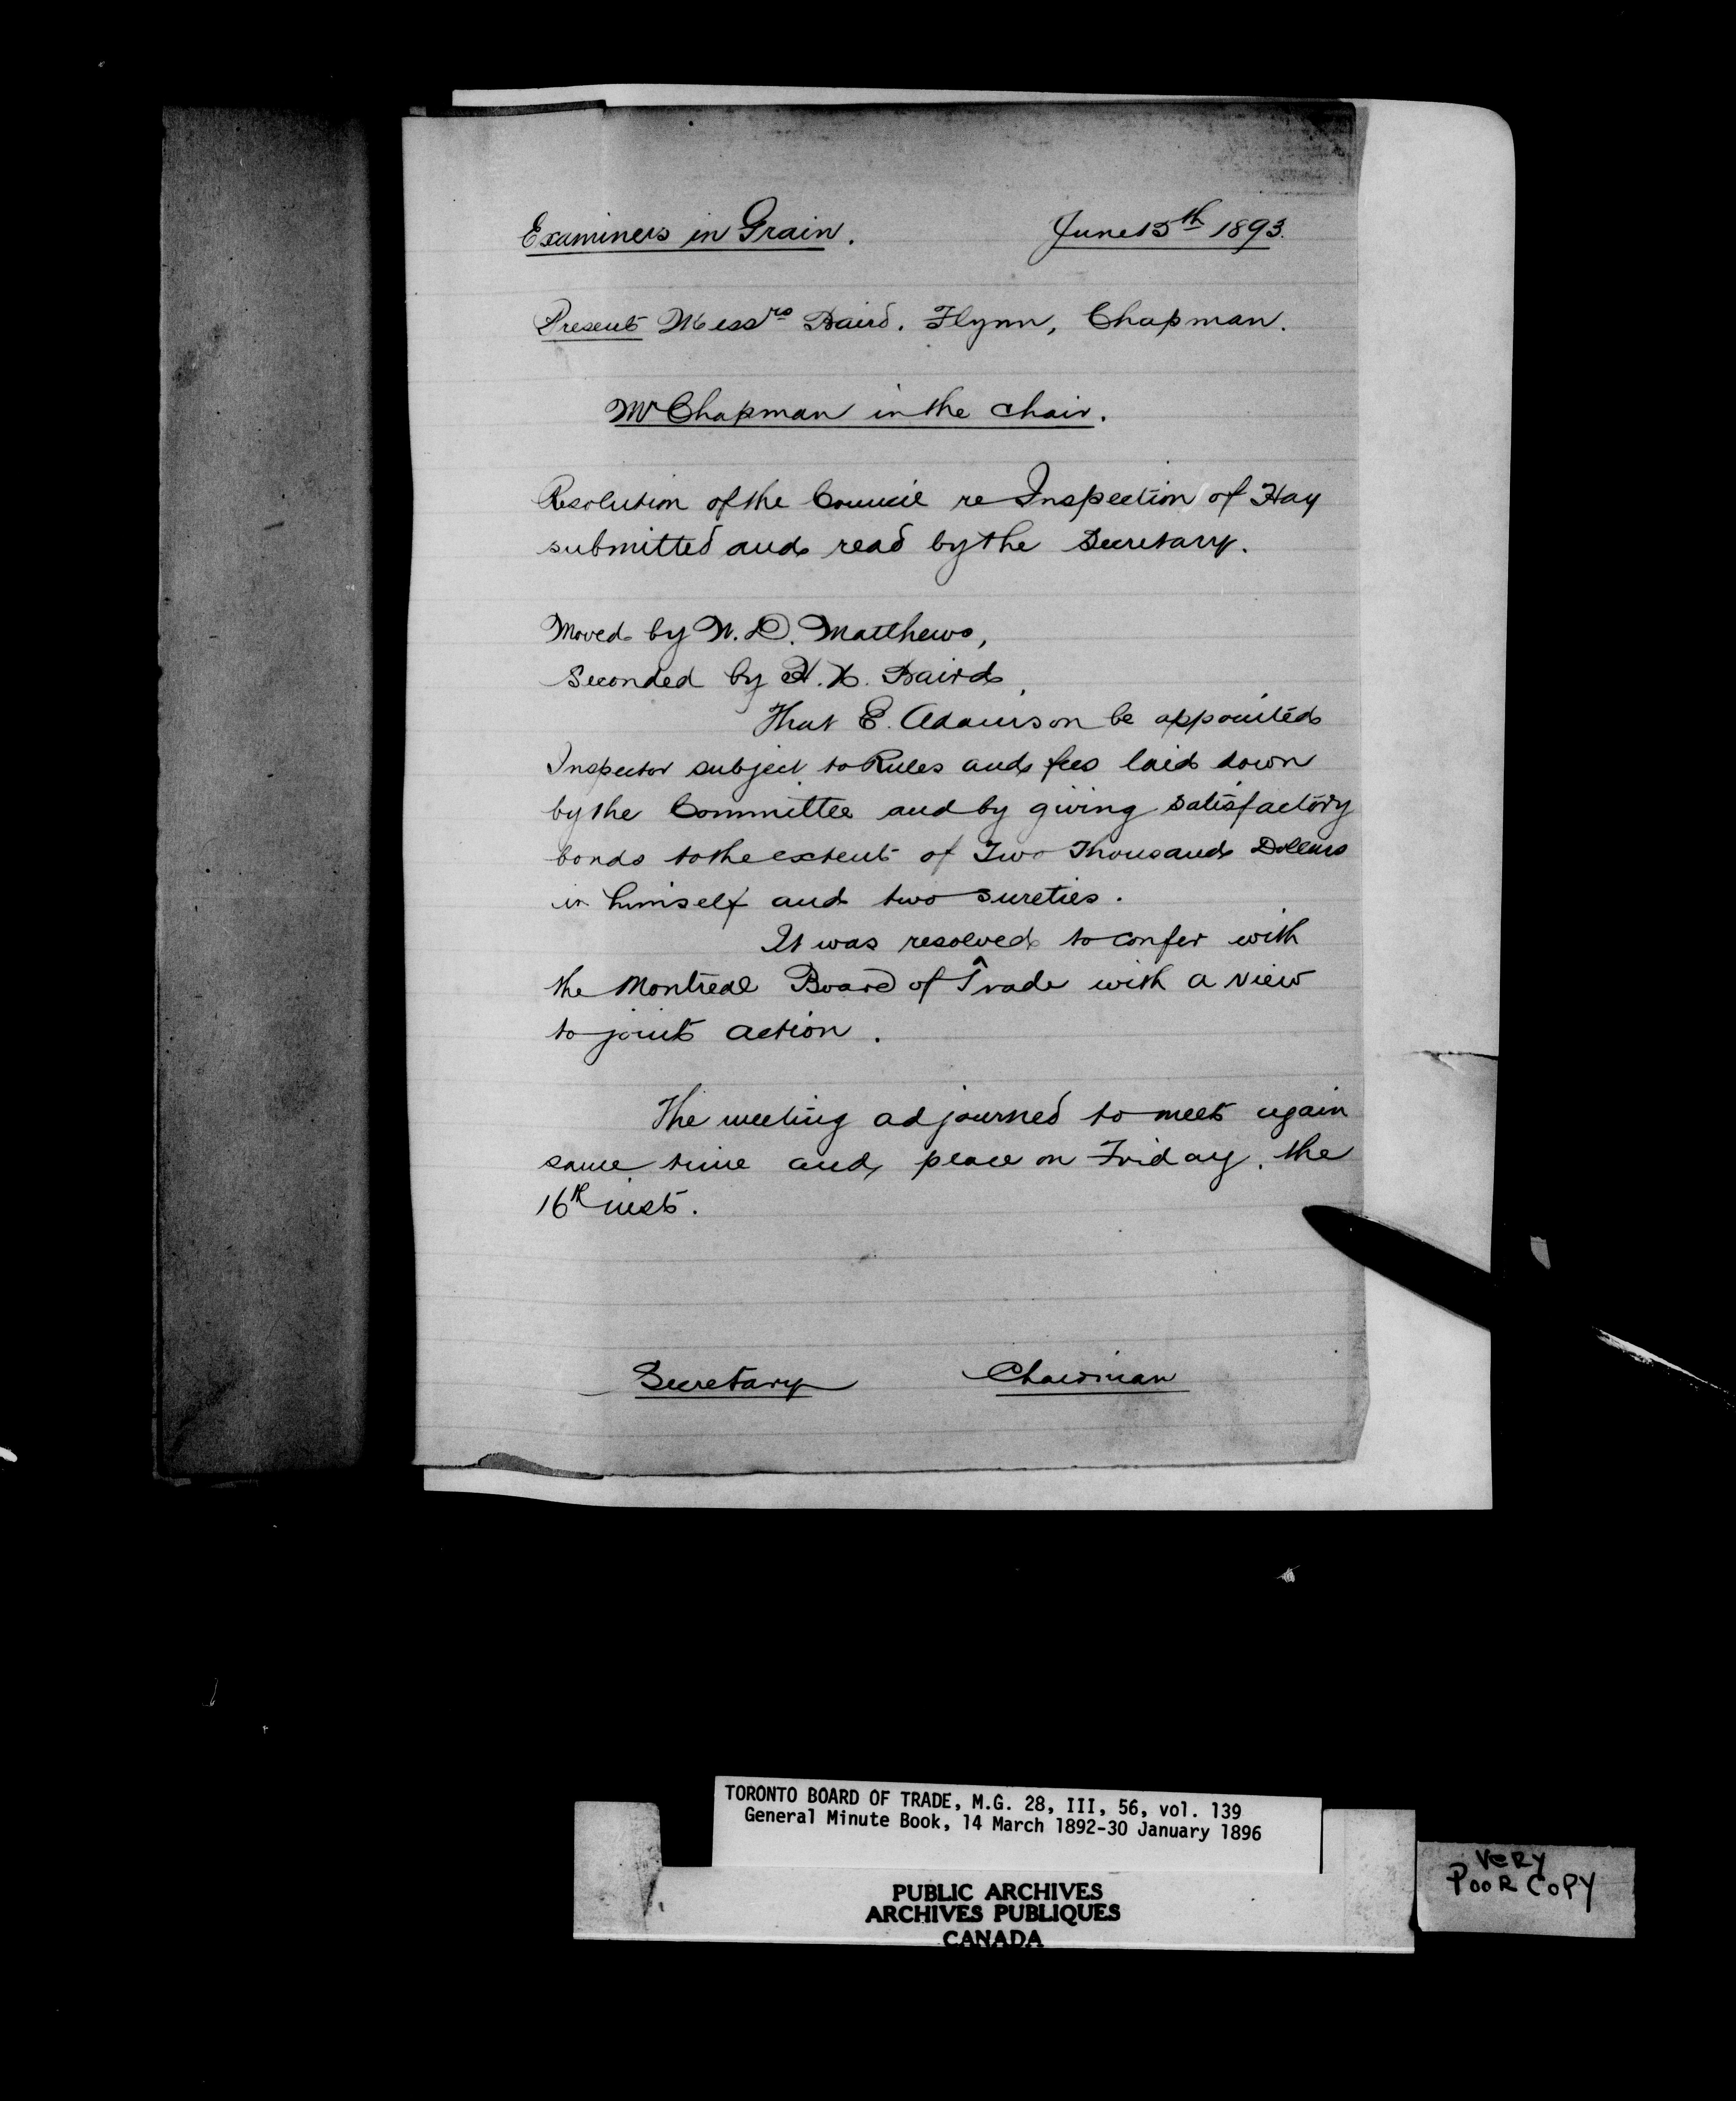 Examiners in Grain. June 15th 1893.
Present Messrs Baird. Flynn, Chapman.
Mr Chapman in the chair.
Resolution of the Council re Inspection of Hay
submitted and read by the Secretary.
Moved by W. D. Matthews,
Seconded by H. N. Baird,
That E. Adamson be appointed
Inspector subject to Rules and fees laid down
by the Committee and by giving satisfactory
bonds to the extent of Two Thousand Dollars
in himself and two sureties.
It was resolved to confer with
the Montreal Board of Trade with a view
to joint action.
The meeting adjourned to meet again
same time and place on Friday, the
16th inst.
Secretary Chairman
TORONTO BOARD OF TRADE, M.G. 28, III, 56, vol. 139
General Minute Book, 14 March 1892-30 January 1896
PUBLIC ARCHIVES
ARCHIVES PUBLIQUES
CANADA
VERY
POOR COPY